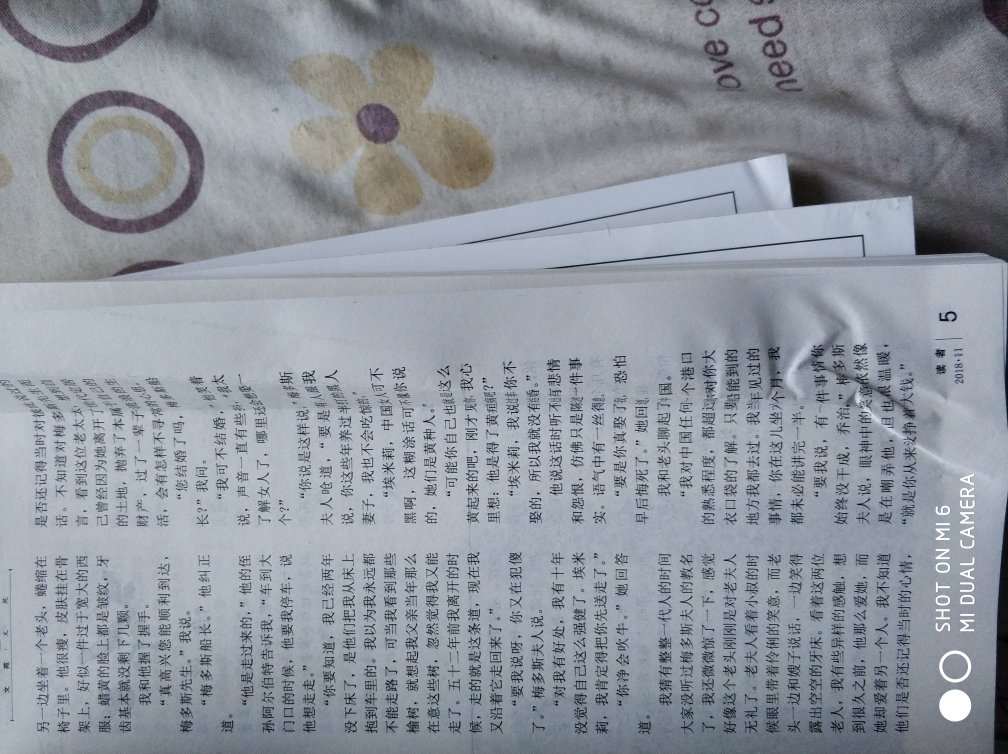 另一边坐着一个老头，蜷缩在
椅子里。他很瘦，皮肤挂在骨
架上，好似一件过于宽大的西
服；蜡黄的脸上都是皱纹，牙
齿基本就没剩下几颗。
我和他握了握手。
“真高兴您能顺利到达，
梅多斯先生。”我说。
“梅多斯船长。”他纠正
道。
“他是走过来的。”他的侄
孙阿尔伯特告诉我，“车到大
门口的时候，他要我停车，说
他想走走。”
“你要知道，我已经两年
没下床了，是他们把我从床上
抱到车里的。我以为我永远都
不能走路了，可当我看到那些
榆树，就想起我父亲当年那么
在意这些树，忽然觉得我又能
走了。五十三年前我离开的时
候，走的就是这条道，现在我
又沿着它走回来了。”
“要我说呀，你又在犯傻
了。”梅多斯夫人说。
“对我有好处，我有十年
没觉得自己这么强健了。埃米
莉，我肯定得把你先送走了。”
“你净会吹牛。”她回答
道。
我猜有整整一代人的时间
大家没听过梅多斯夫人的教名
了，我还微微惊了一下，感觉
好像这个老头刚刚是对老夫人
无礼了。老夫人看着小叔的时
候眼里带着伶俐的笑意，而老
头一边和嫂子说话，一边笑得
露出空空的牙床。看着这两位
老人，我有些异样的感触，想
到很久之前，他那么爱她，而
她却爱着另一个人。我不知道
他们是否还记得当时的心情，
是否还记得当时对彼
话。不知道对梅多
言，看到这位老太太
已曾经因为她离开了
的土地，抛弃了本属
财产，过了一辈子
活，会有怎样不寻常
“您结婚了吗，
长？”我问。
“我可不结婚，”
说，声音一直有些
了解女人了，哪里还
个？”
“你说是这样说，”
夫人呛道，“要是
说，你这些年养过半
妻子，我也不会吃惊
“埃米莉，中国人可不
黑啊，这糊涂话可你说
的，她们是黄种人。”
“可能你自己也这么
黄起来的吧，刚才见我心
里想：他是得了黄疸呢？”
“埃米莉，我说你不
娶的，所以我就没有婚。”
他说这话时听不出悲情
和怨恨，仿佛只是陈述一件事
实。语气中有一丝得意。
“要是你真娶了，恐怕
早后悔死了。”她回道。
我和老头聊起了中国。
“我对中国任何一个港口
的熟悉程度，都超过你对你大
衣口袋的了解。只要船能到的
地方我都去过。我当年见过的
事情，你在这儿坐六个月，我
都未必能讲完一半。”
“要我说，有一件事情你
始终没干成，乔治，”梅多斯
夫人说，眼神中的笑意依然像
是在嘲弄他，但也很温暖，
“就是你从来没挣着大钱。”
读者
2018·11
5
ove co
need s
SHOT ON MI 6
MI DUAL CAMERA